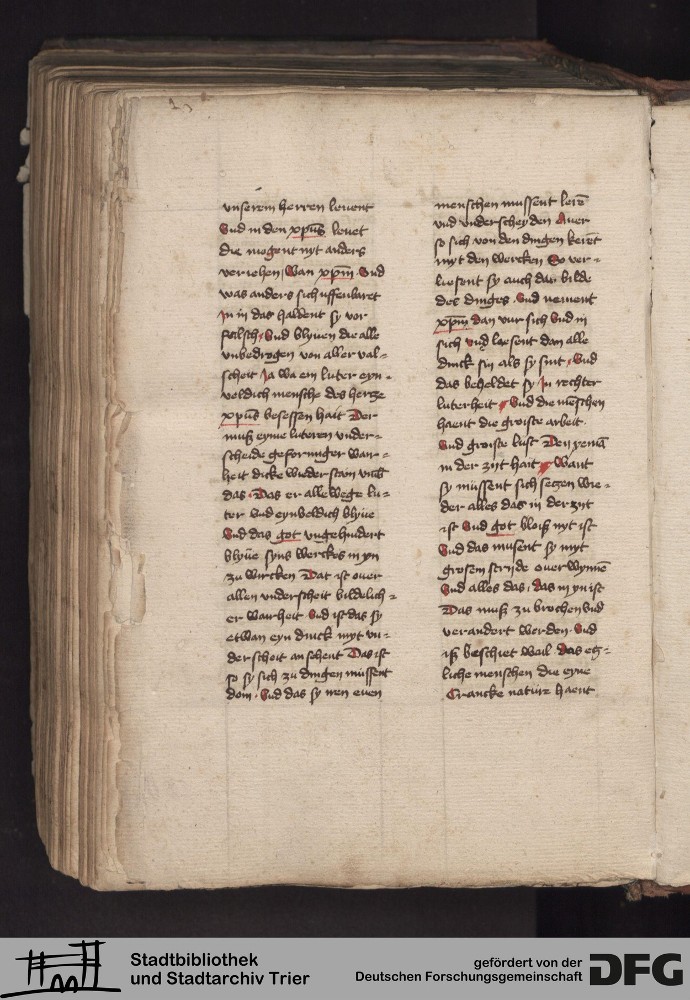 unserem herren leuent
Vnd in den xpūs leuet
die mogent nyt anders
veriehen / Wan xpm̄ . Vnd
was anders sich uffenbaret
Jn in das haldent sy vor
falsch / Vnd blyuen die alle
vnbedrogen von aller val-
scheit Ja wa ein luter eyn-
veldich mensche des hertze
xpūs besessen hait Der
muß eyme luteren vnder-
scheide geformiger war-
heit dicke wiederstain vmb
das / Das er alle wege lu-
ter Vnd eynveldich blyue
Vnd das got vngehindert
blyue syns werckes in yn
zu wircken Dat ist ouer
allen vnderscheit bildelich-
er warheit Vnd ist das sy
etwan eyn dinck myt vn-
derscheit an sehent Das ist
so sy sich zu dingen müssent
doin . Vnd das sy nen euen
menschen mussent lerē
vnd vnderscheyden Auer
so sich von den dingen kerēt
myt den wercken So ver-
liesent sy auch dar bilde
des dinges . Vnd nement
xpm̄ dan vur sich Vnd in
sich vnd laesent dan alle
dinck sin als sy sint / Vnd
das beheldet sy in rechter
luterheit / Vnd die mēschen
haent die groiste arbeit .
Vnd groiste lust Den yemā
in der zyt hait / Want
sy müssent sich segen wie-
der alles das in der zyt
ist Vnd got bloiß nyt ist
Vnd das musent sy myt
grosem strijde ouerwynnē
Vnd alles das / das in yn ist
Das muß zu brochen Vnd
verandert werden . Vnd
iß beschiet weil das etz-
liche menschen die eyne
Crancke nature haent
Stadtbibliothek
und Stadtarchiv Trier
gefördert von der
Deutschen Forschungsgemeinschaft
DFG